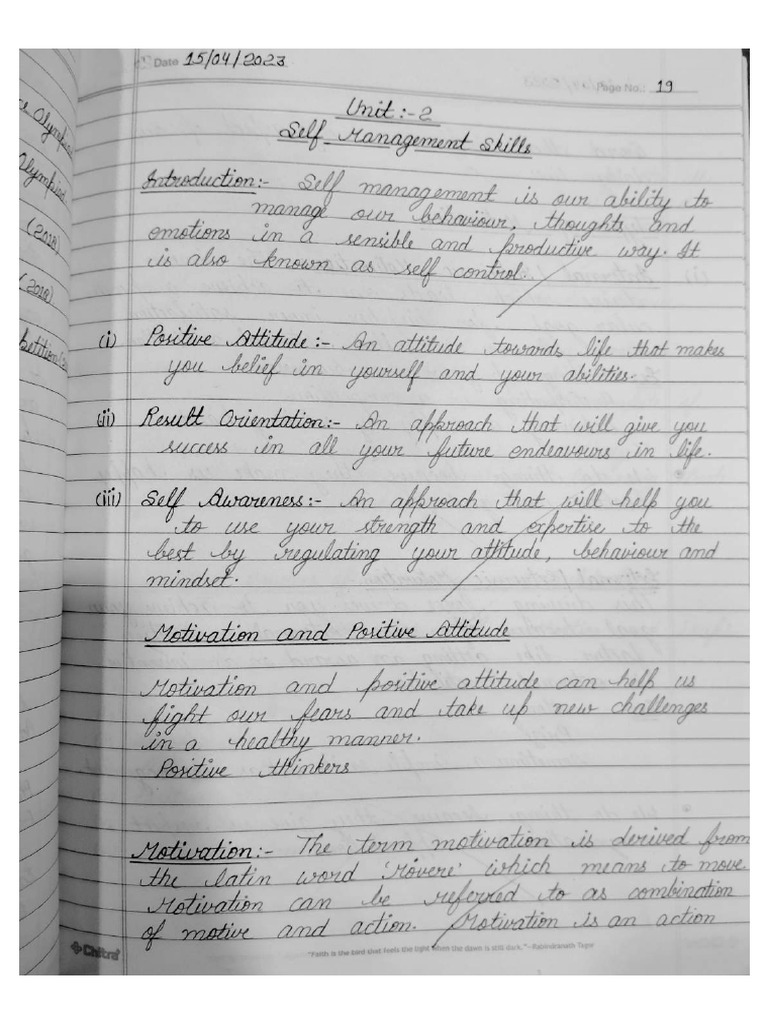 Date 15/04/2023
Page No.: 19
Unit :- 2
Self Management Skills
Introduction:- Self management is our ability to
manage our behaviour, thoughts and
emotions in a sensible and productive way. It
is also known as self control.
(i) Positive Attitude :- An attitude towards life that makes
you belief in yourself and your abilities.
(ii) Result Orientation:- An approach that will give you
success in all your future endeavours in life.
(iii) Self Awareness:- An approach that will help you
to use your strength and expertise to the
best by regulating your attitude, behaviour and
mindset.
Motivation and Positive Attitude
Motivation and positive attitude can help us
fight our fears and take up new challenges
in a healthy manner.
Positive thinkers
Motivation:- The term motivation is derived from
the latin word 'movere' which means to move.
Motivation can be referred to as combination
of motive and action. Motivation is an action
"Faith is the bird that feels the light when the dawn is still dark." - Rabindranath Tagor
Olympiad
(2018)
(2018)